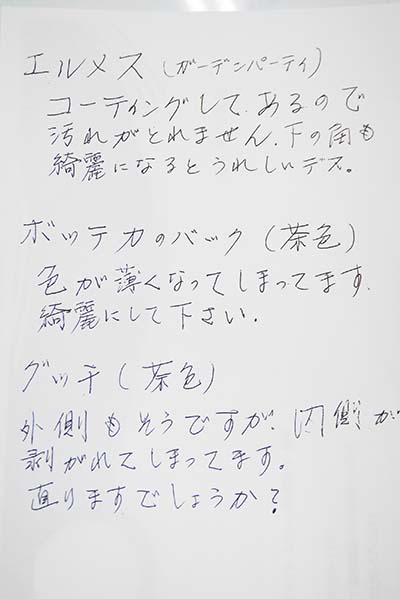 エルメス（ガーデンパーティ）
コーティングして、あるので
汚れがとれません、下の角も
綺麗になるとうれしいデス。
ボッテガのバック（茶色）
色が薄くなってしまってます、
綺麗にして下さい。
グッチ（茶色）
外側もそうですが、内側が
剥がれてしまってます。
直りますでしょうか？